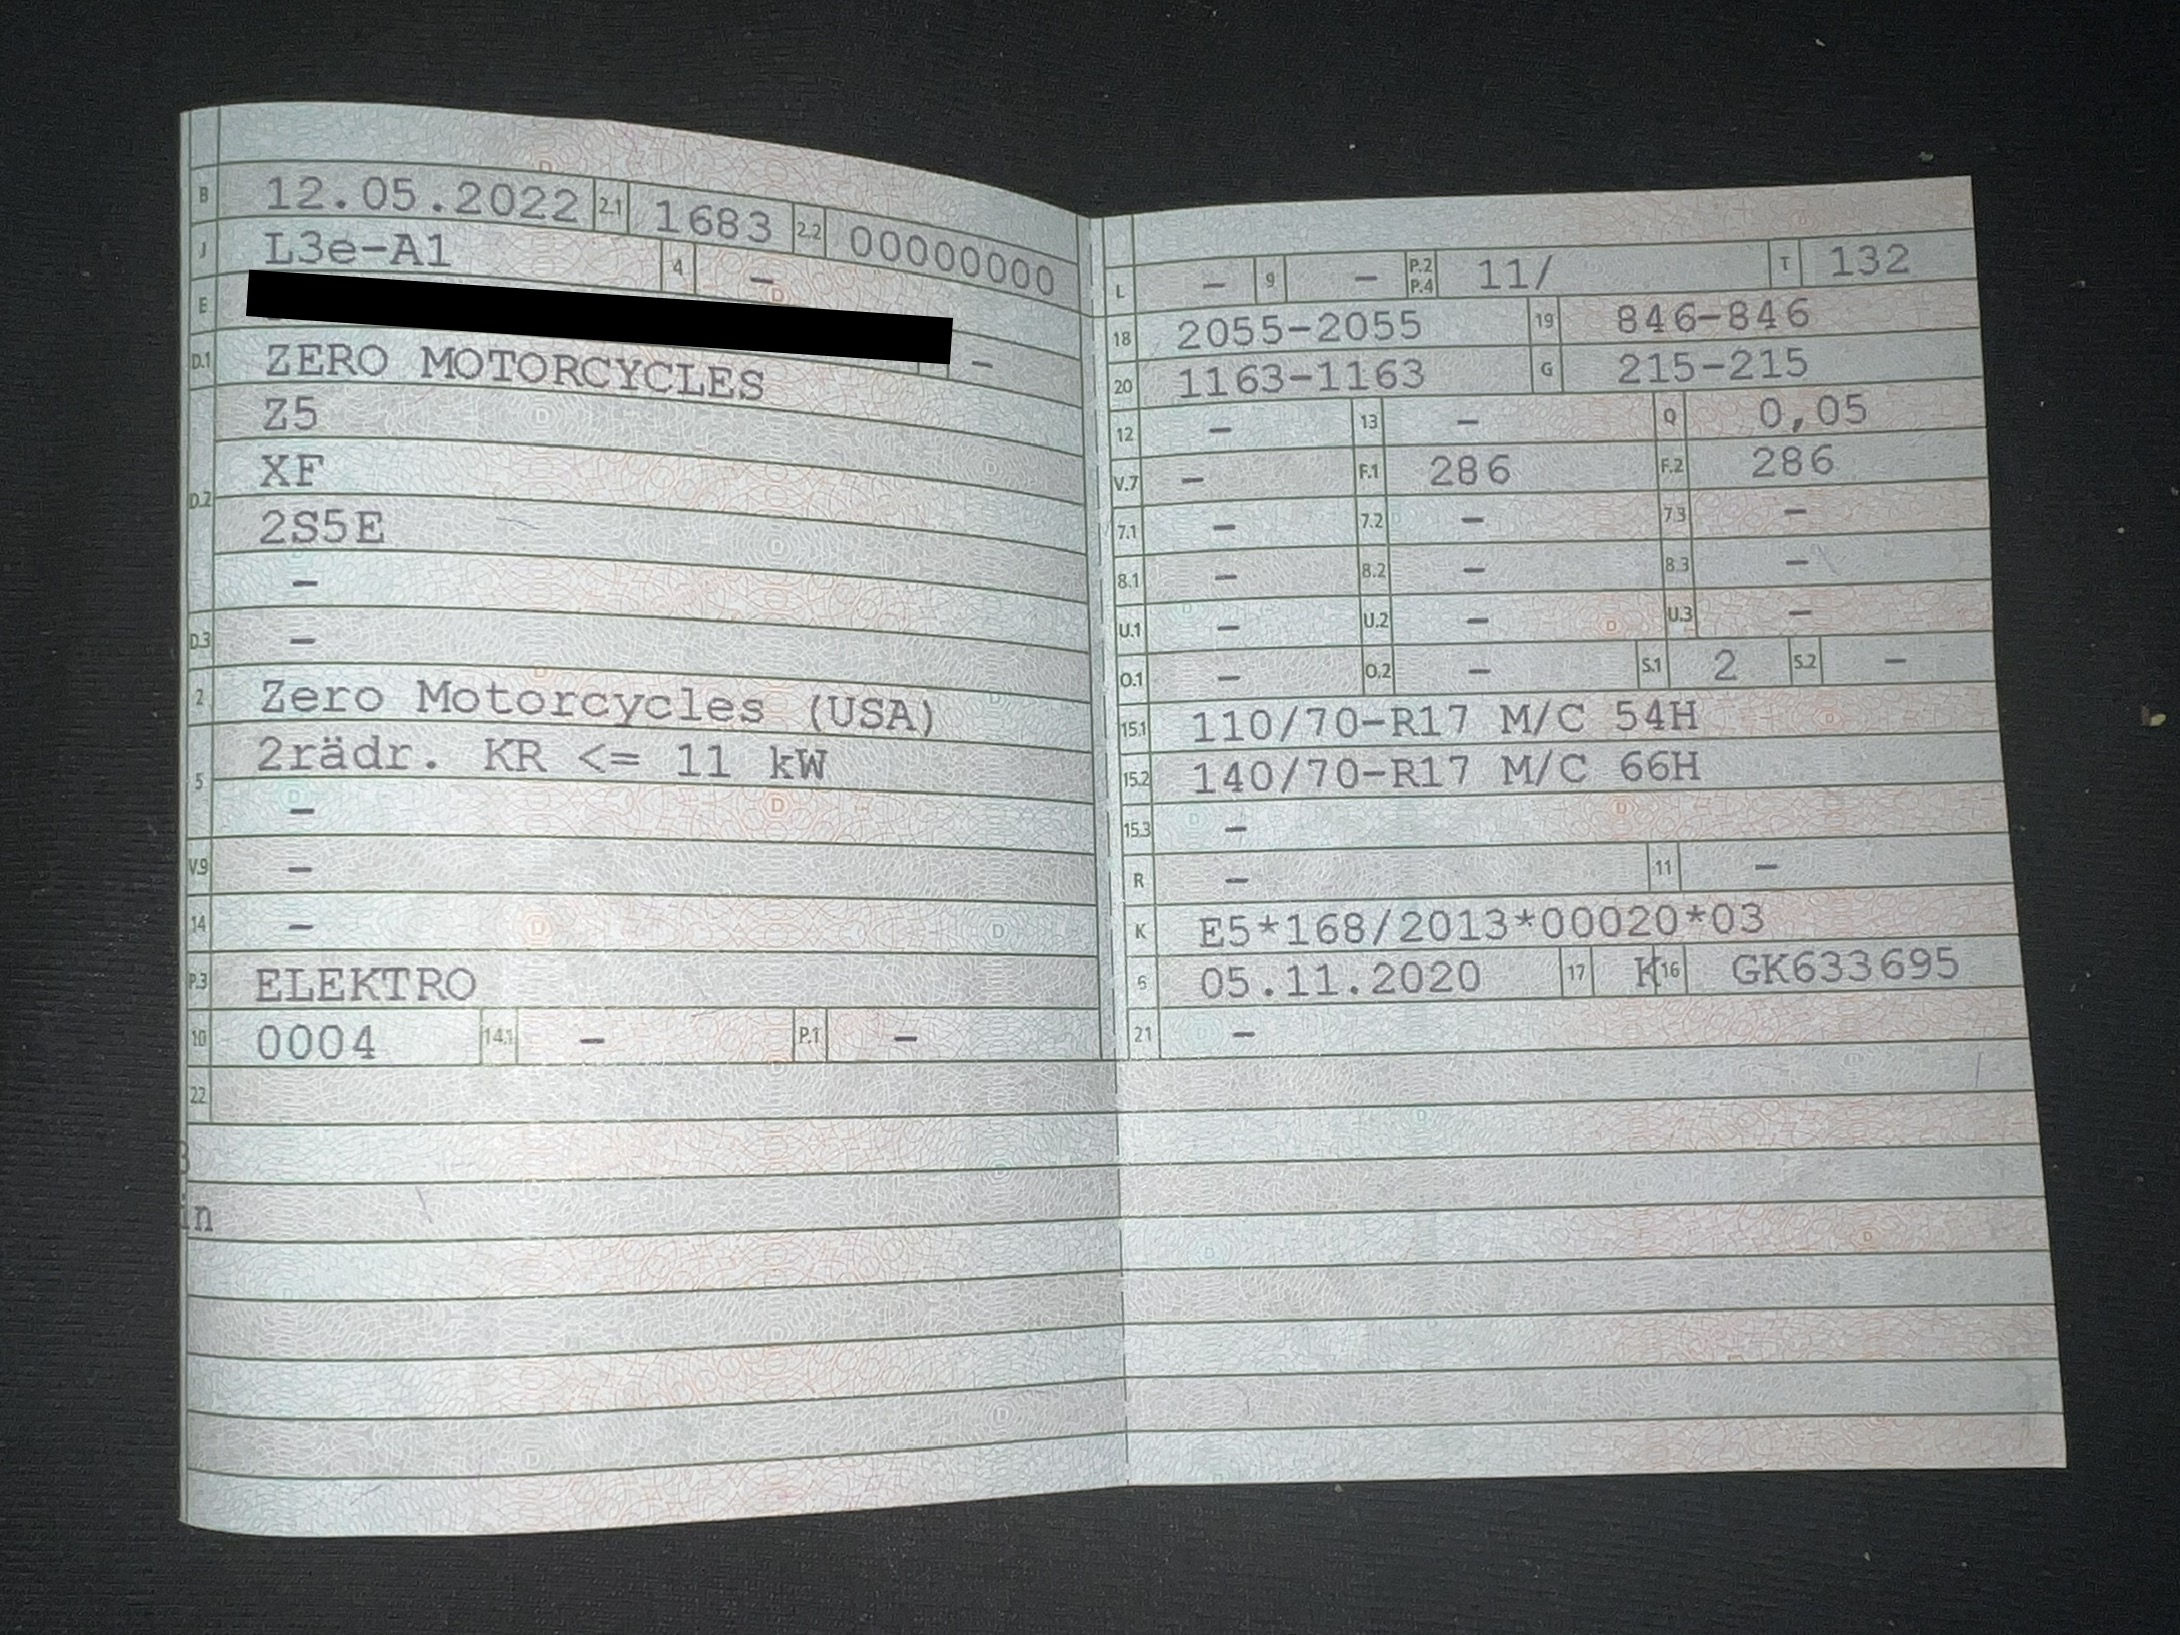 B 12.05.2022 2.1 1683 2.2 00000000
J L3e-A1 4 –
E –
D.1 ZERO MOTORCYCLES
Z5
D.2 XF
2S5E
–
D.3 –
2 Zero Motorcycles (USA)
5 2rädr. KR <= 11 kW
–
V.9 –
14 –
P.3 ELEKTRO
10 0004 14.1 – P.1 –
22
in
L – 9 – P.2 P.4 11/ T 132
18 2055-2055 19 846-846
20 1163-1163 G 215-215
12 – 13 – Q 0,05
V.7 – F.1 286 F.2 286
7.1 – 7.2 – 7.3 –
8.1 – 8.2 – 8.3 –
U.1 – U.2 – U.3 –
O.1 – O.2 – S.1 2 S.2 –
15.1 110/70-R17 M/C 54H
15.2 140/70-R17 M/C 66H
15.3 –
R – 11 –
K E5*168/2013*00020*03
6 05.11.2020 17 K 16 GK633695
21 –